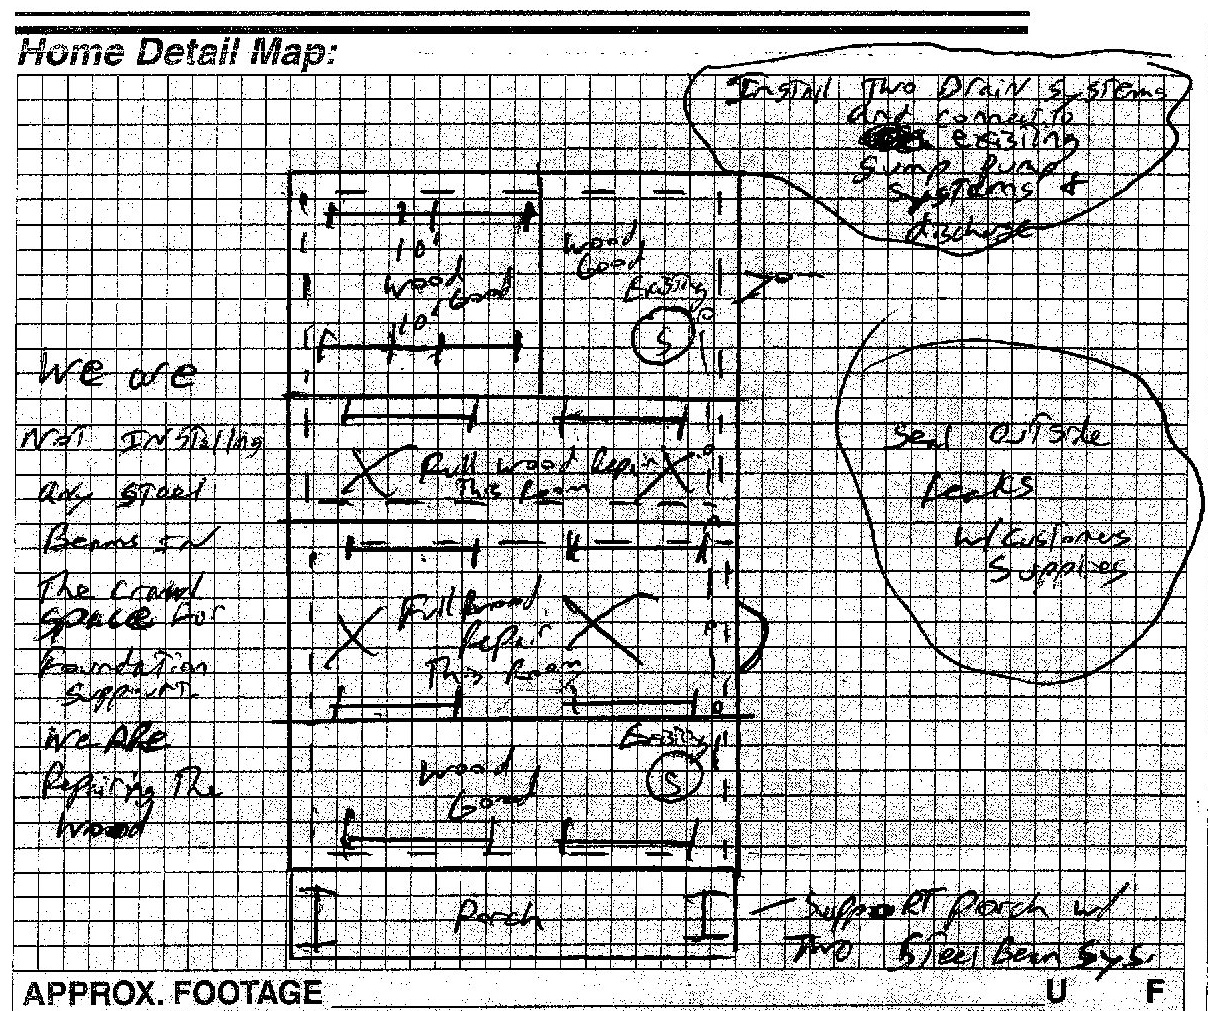 Home Detail Map:
Install Two Drain Systems
and connect to
existing
Sump Pump
Systems &
discharge
10'
Wood
Good
10'
Wood
Good
Existing
S
We are
Not Installing
any steel
Beams in
The crawl
space for
Foundation
support
We ARE
Repairing The
Wood
Full wood Repair
This Room
Full wood
Repair
This Room
Seal outside
Leaks
w/customers
Supplies
Existing
S
Wood
Good
Porch
Support Porch w/
Two Steel Beam Sys.
APPROX. FOOTAGE
U F